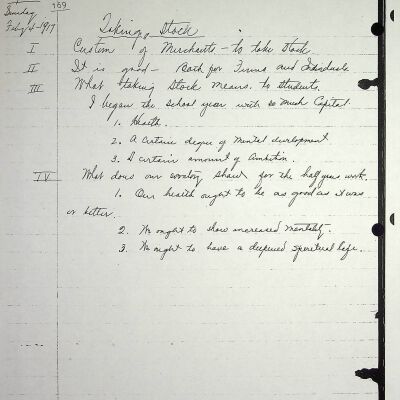 Sunday 169
Feby 4-1917 Taking Stock
I Custom of Merchants - to take stock
II It is good - Both for Firms and Individuals
III What taking Stock means to students.
I began the school year with so much Capital.
1. Health.
2. A certain degree of mental development
3. A certain amount of ambition.
IV What does our inventory show for the half years work.
1. Our health ought to be as good as it was
or better.
2. We ought to show increased mentality.
3. We ought to have a deepened spiritual life.